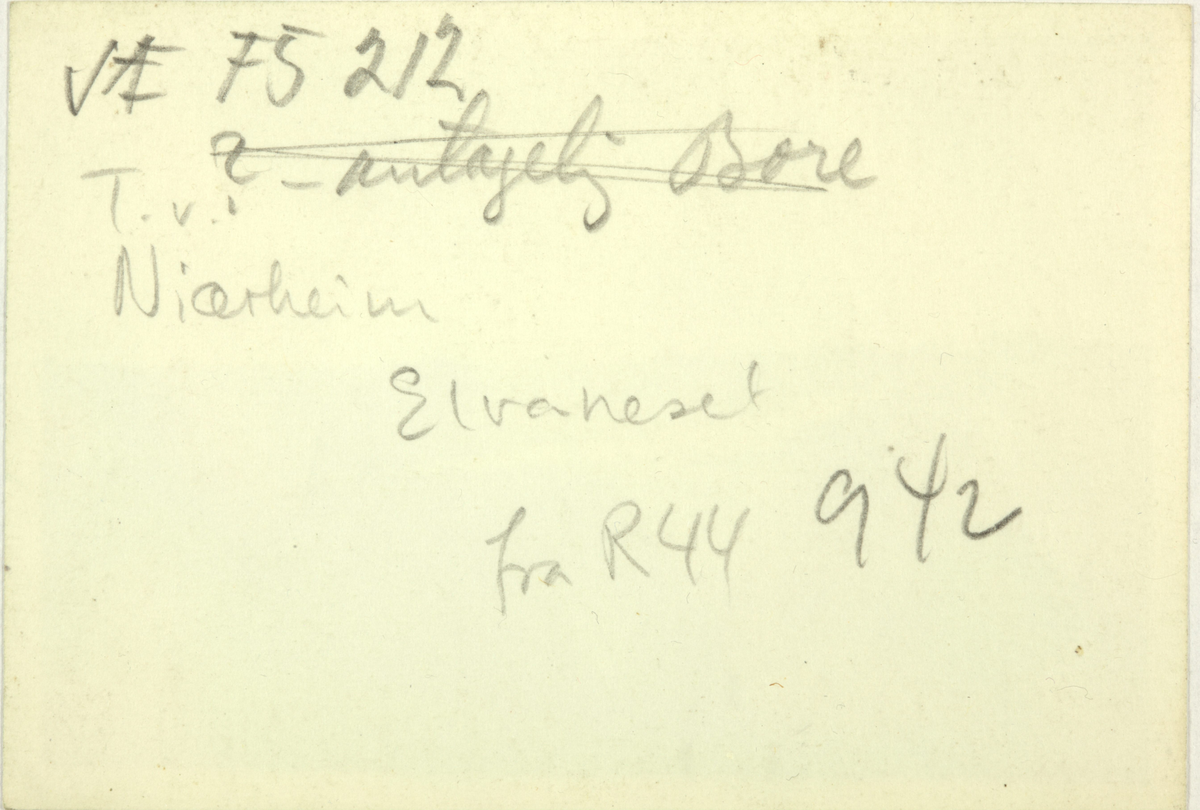 75 212
? - antagelig Bore
T.v.:
Niærheim
Elvaneset
fra R44 942